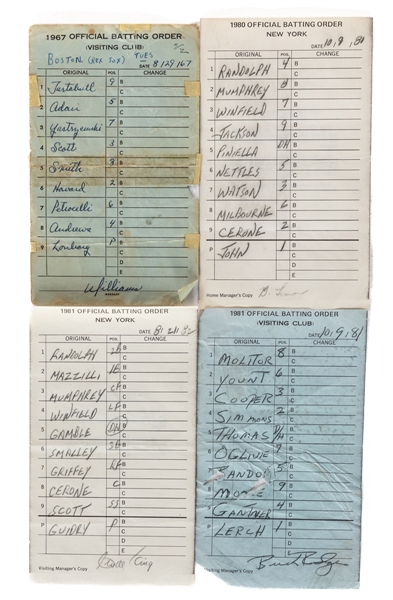 1967 OFFICIAL BATTING ORDER
(VISITING CLUB)
BOSTON (RED SOX) TUES
DATE 8/29/67
ORIGINAL POS. CHANGE
1 Tartabull 9 B
C
2 Adair 5 B
C
3 Yastrzemski 7 B
C
4 Scott 3 B
C
5 Smith 8 B
C
6 Howard 2 B
C
7 Petrocelli 6 B
C
8 Andrews 4 B
C
9 Lonborg P B
C
D
E
Williams
MANAGER
1980 OFFICIAL BATTING ORDER
NEW YORK
DATE 10, 9, 81
ORIGINAL POS. CHANGE
1 RANDOLPH 4 B
C
2 MUMPHREY 8 B
C
3 WINFIELD 7 B
C
4 JACKSON 9 B
C
5 PINIELLA DH B
C
6 NETTLES 5 B
C
7 WATSON 3 B
C
8 MILBOURNE 6 B
C
9 CERONE 2 B
C
P JOHN 1 B
C
D
E
Home Manager's Copy
1981 OFFICIAL BATTING ORDER
NEW YORK
DATE
ORIGINAL POS. CHANGE
1 RANDOLPH 2B B
C
2 MAZZILLI 1B B
C
3 MUMPHREY CF B
C
4 WINFIELD LF B
C
5 GAMBLE DH B
C
6 SMALLEY 3B B
C
7 GRIFFEY RF B
C
8 CERONE C B
C
9 SCOTT SS B
C
P GUIDRY P B
C
D
E
Visiting Manager's Copy Clyde King
1981 OFFICIAL BATTING ORDER
(VISITING CLUB)
DATE 10, 9, 81
ORIGINAL POS. CHANGE
1 MOLITOR 8 B
C
2 YOUNT 6 B
C
3 COOPER 3 B
C
4 SIMMONS 2 B
C
5 THOMAS DH B
C
6 OGLIVIE 7 B
C
7 BANDO 5 B
C
8 MOORE 9 B
C
9 GANTNER 4 B
C
P LERCH 1 B
C
D
E
Visiting Manager's Copy Buck Rodgers